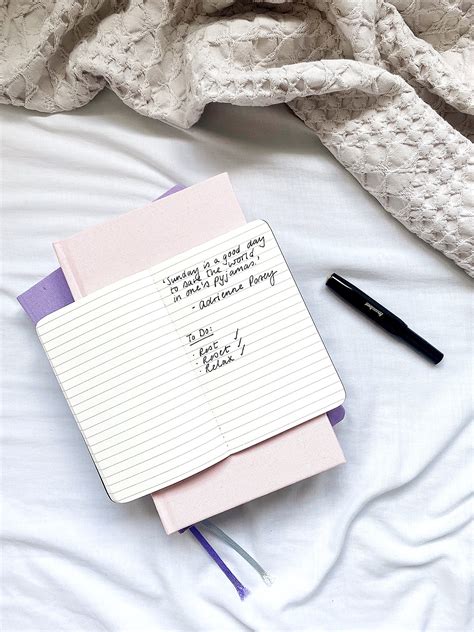 'Sunday is a good day
to save the world
in one's pyjamas.'
- Adrienne Posey
To Do:
· Rest ✓
· Reset ✓
· Relax ✓